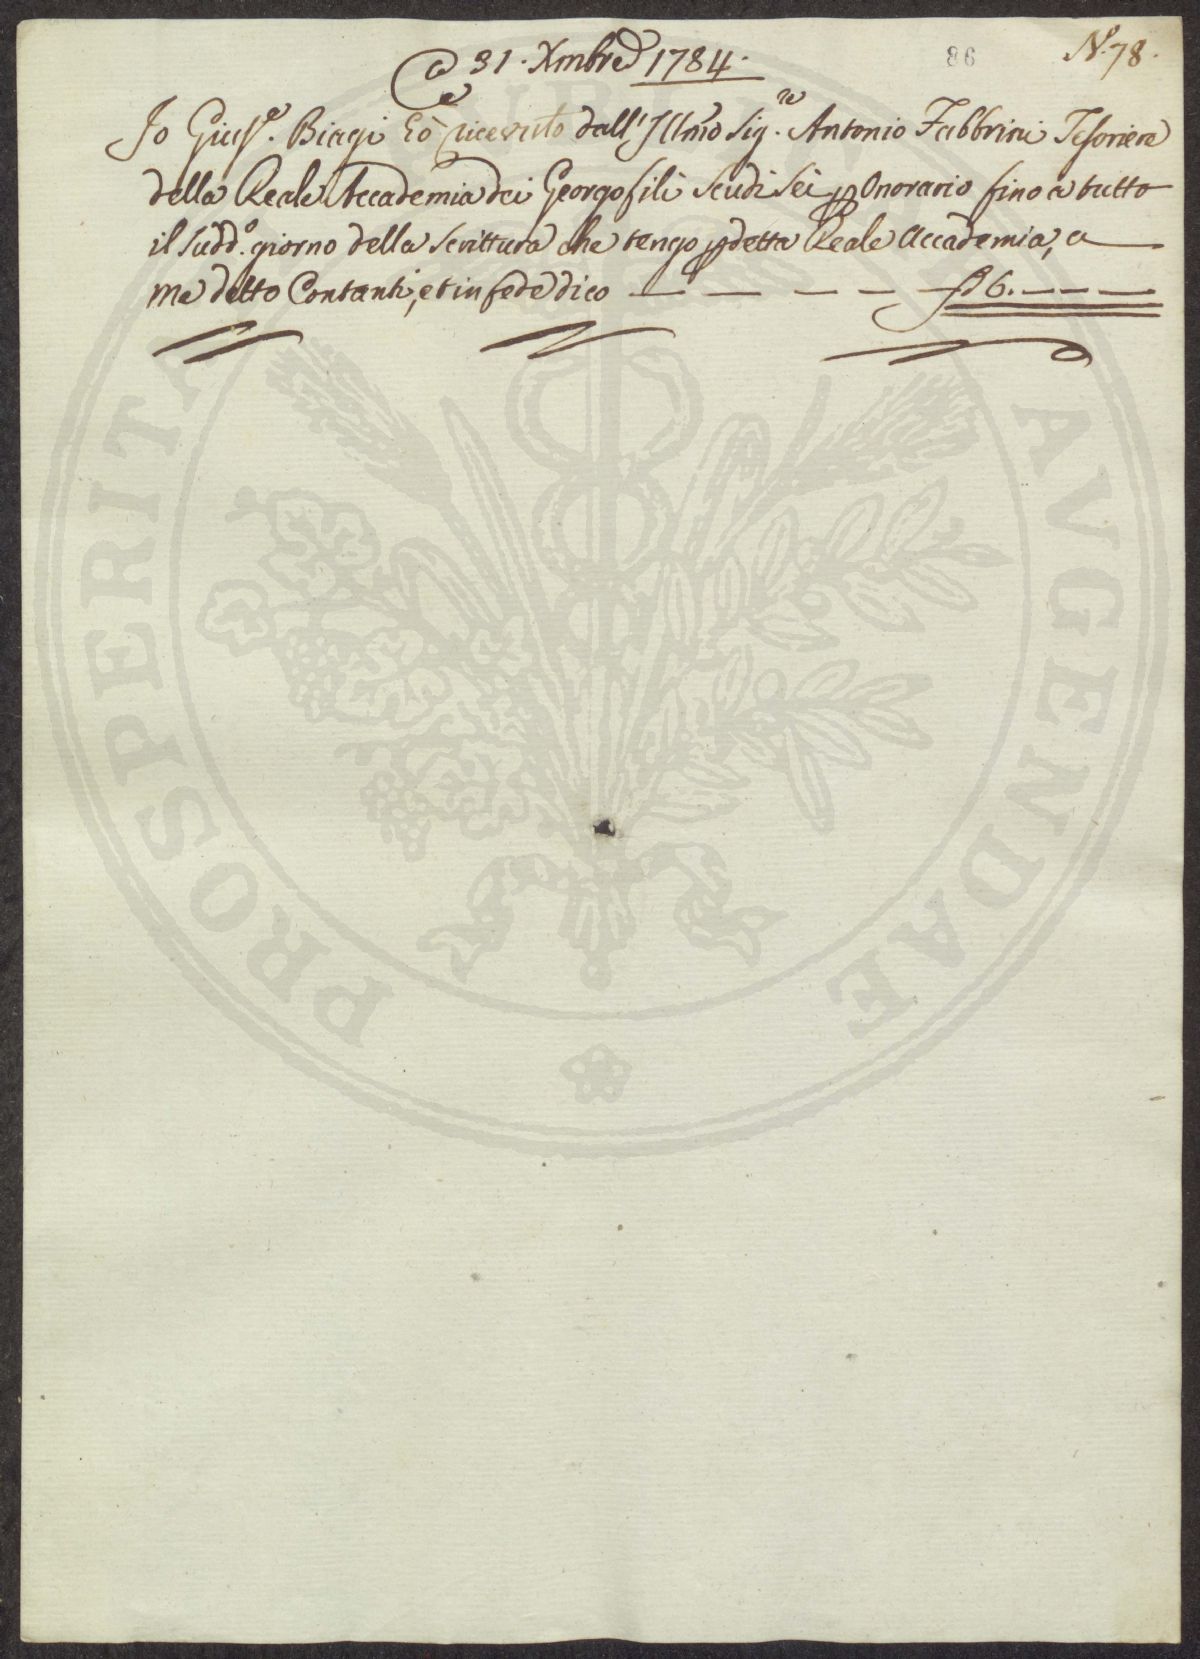 N.° 78.
86
A 31. Xmbre 1784.
Io Gius.e Biagi hò ricevuto dall' Ill.mo Sig.re Antonio Fabbrini Tesoriere
della Reale Accademia dei Georgofili scudi sei p Onorario fino a tutto
il sudd.o giorno della scrittura che tengo p detta Reale Accademia, a
me detto Contanti, et in fede dico — — — — — — 6. — — —
PROSPERITATI PUBLICAE AVGENDAE